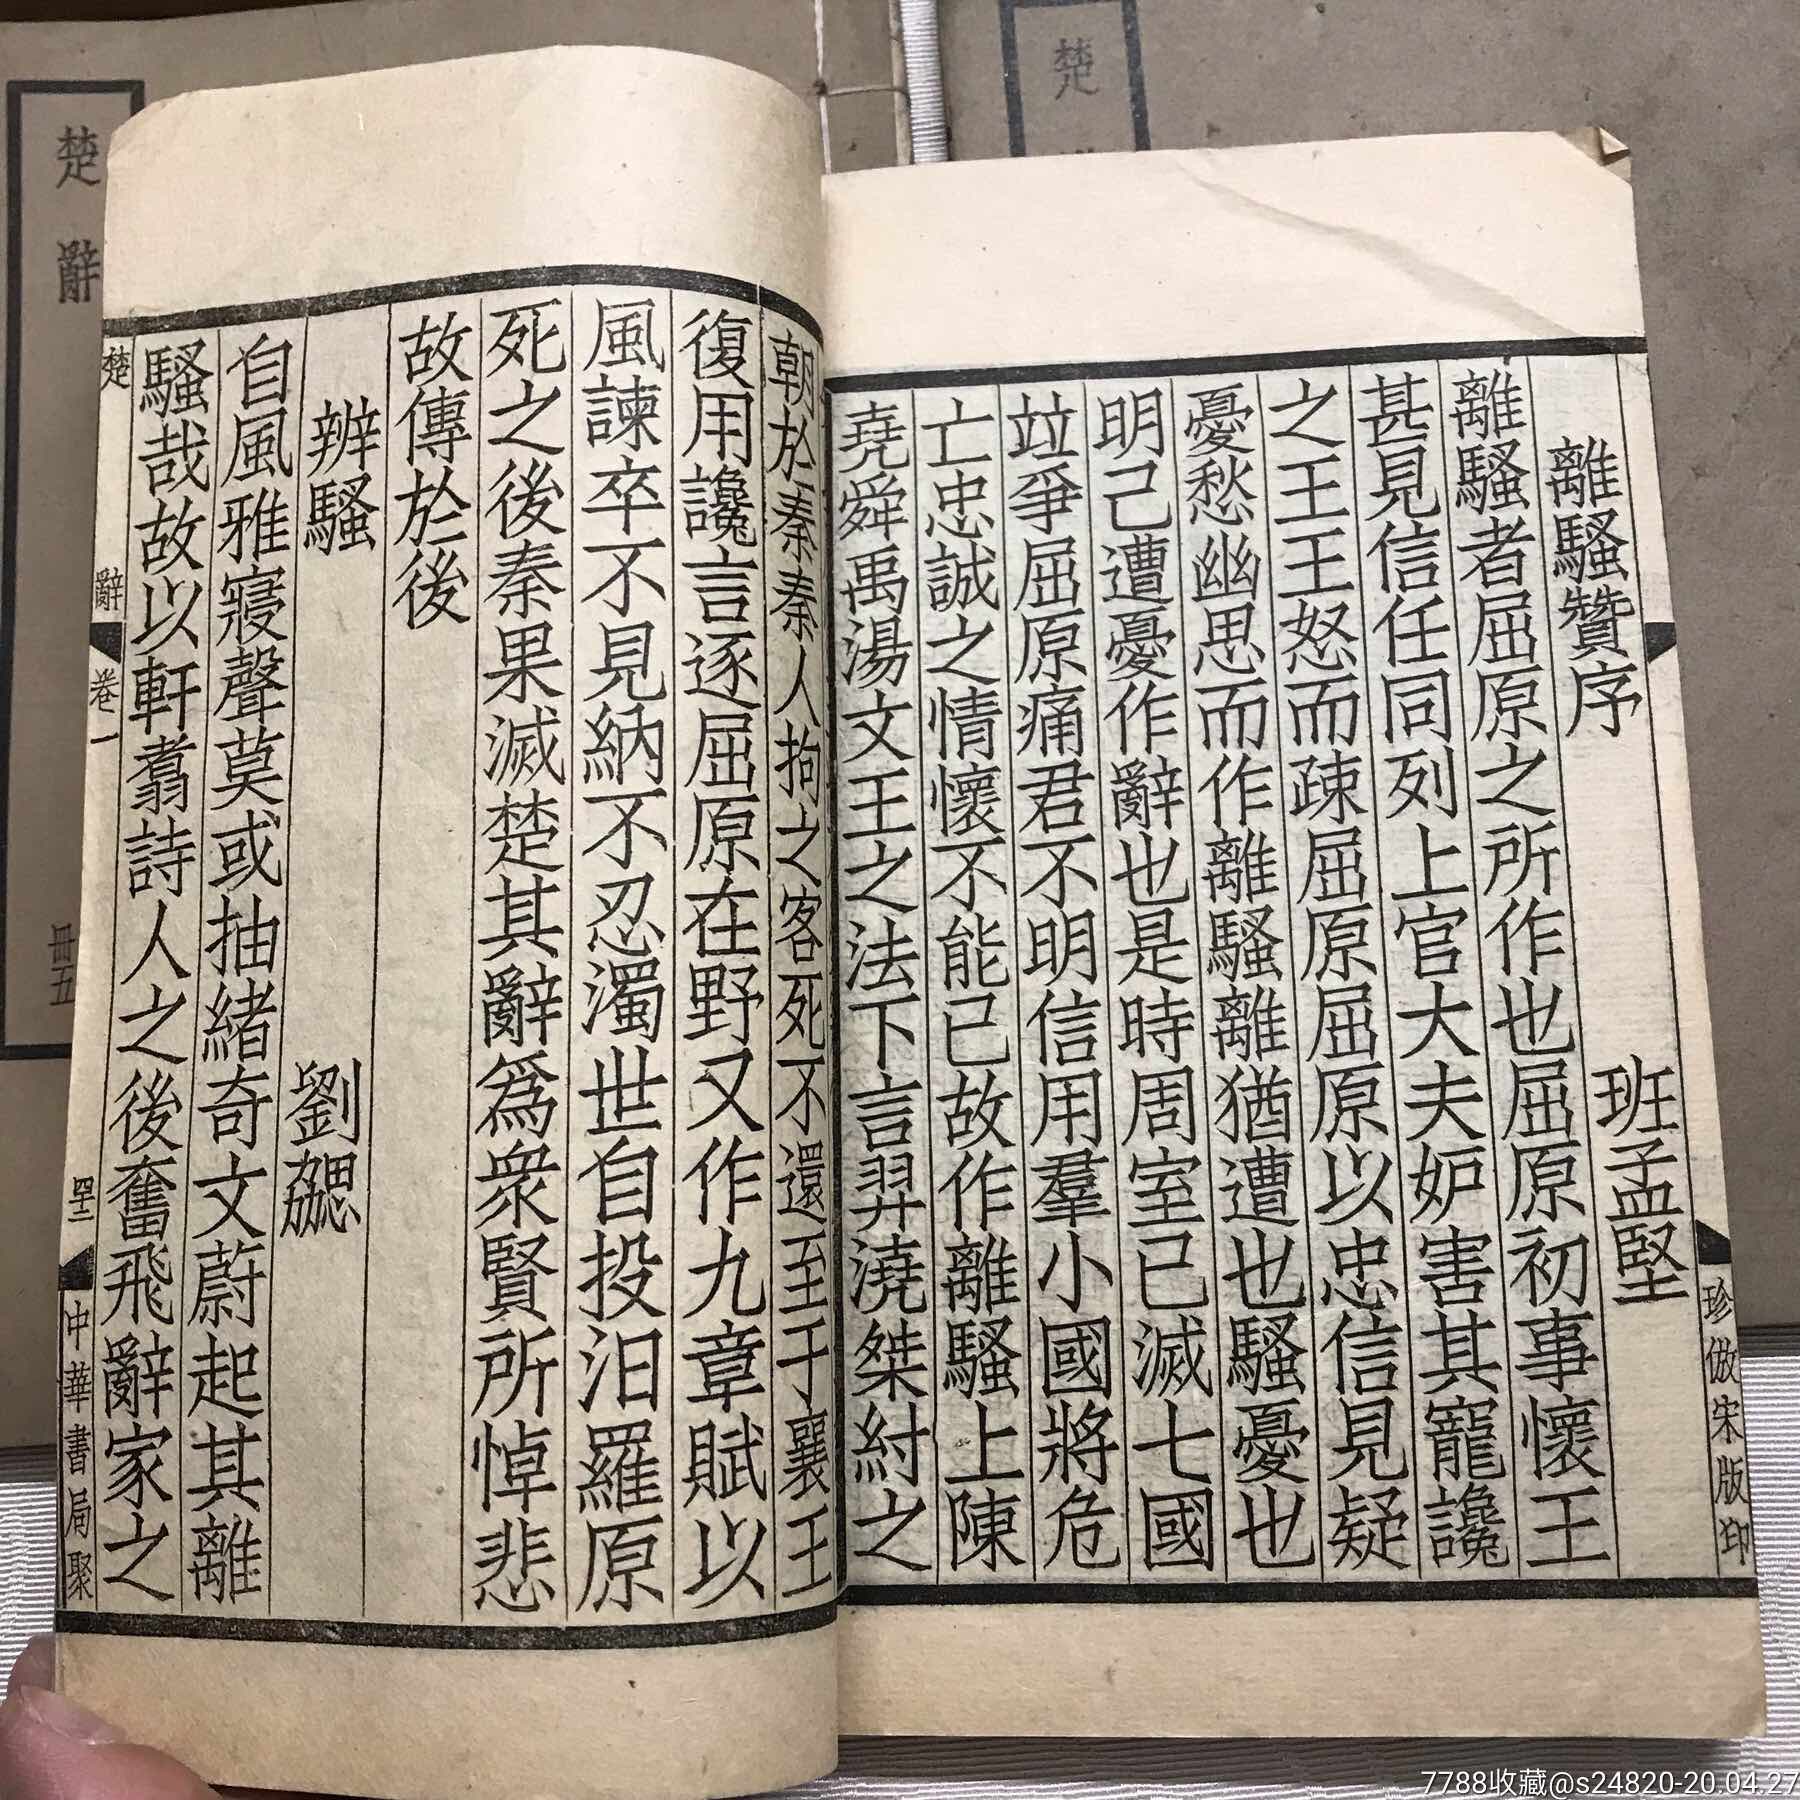 珍倣宋版印
離騷贊序 班孟堅
離騷者屈原之所作也屈原初事懷王
甚見信任同列上官大夫妒害其寵讒
之王王怒而疎屈原屈原以忠信見疑
憂愁幽思而作離騷離猶遭也騷憂也
明己遭憂作辭也是時周室已滅七國
竝爭屈原痛君不明信用羣小國將危
亡忠誠之情懷不能已故作離騷上陳
堯舜禹湯文王之法下言羿澆桀紂之
朝於秦秦人拘之客死不還至于襄王
復用讒言逐屈原在野又作九章賦以
風諫卒不見納不忍濁世自投汨羅原
死之後秦果滅楚其辭爲衆賢所悼悲
故傳於後
辨騷 劉勰
自風雅寢聲莫或抽緒奇文蔚起其離
騷哉故以軒翥詩人之後奮飛辭家之
楚辭 卷一 四十二 中華書局聚
楚
楚辭 冊五
7788收藏@s24820-20.04.27